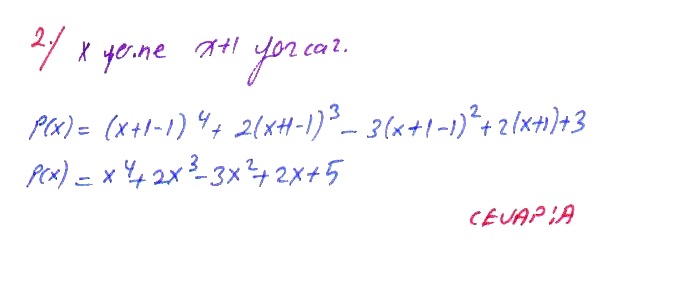 2./ x yerine x+1 yazılar.
P(x) = (x+1-1)⁴ + 2(x+1-1)³ - 3(x+1-1)² + 2(x+1)+3
P(x) = x⁴ + 2x³ - 3x² + 2x + 5
CEVAP: A